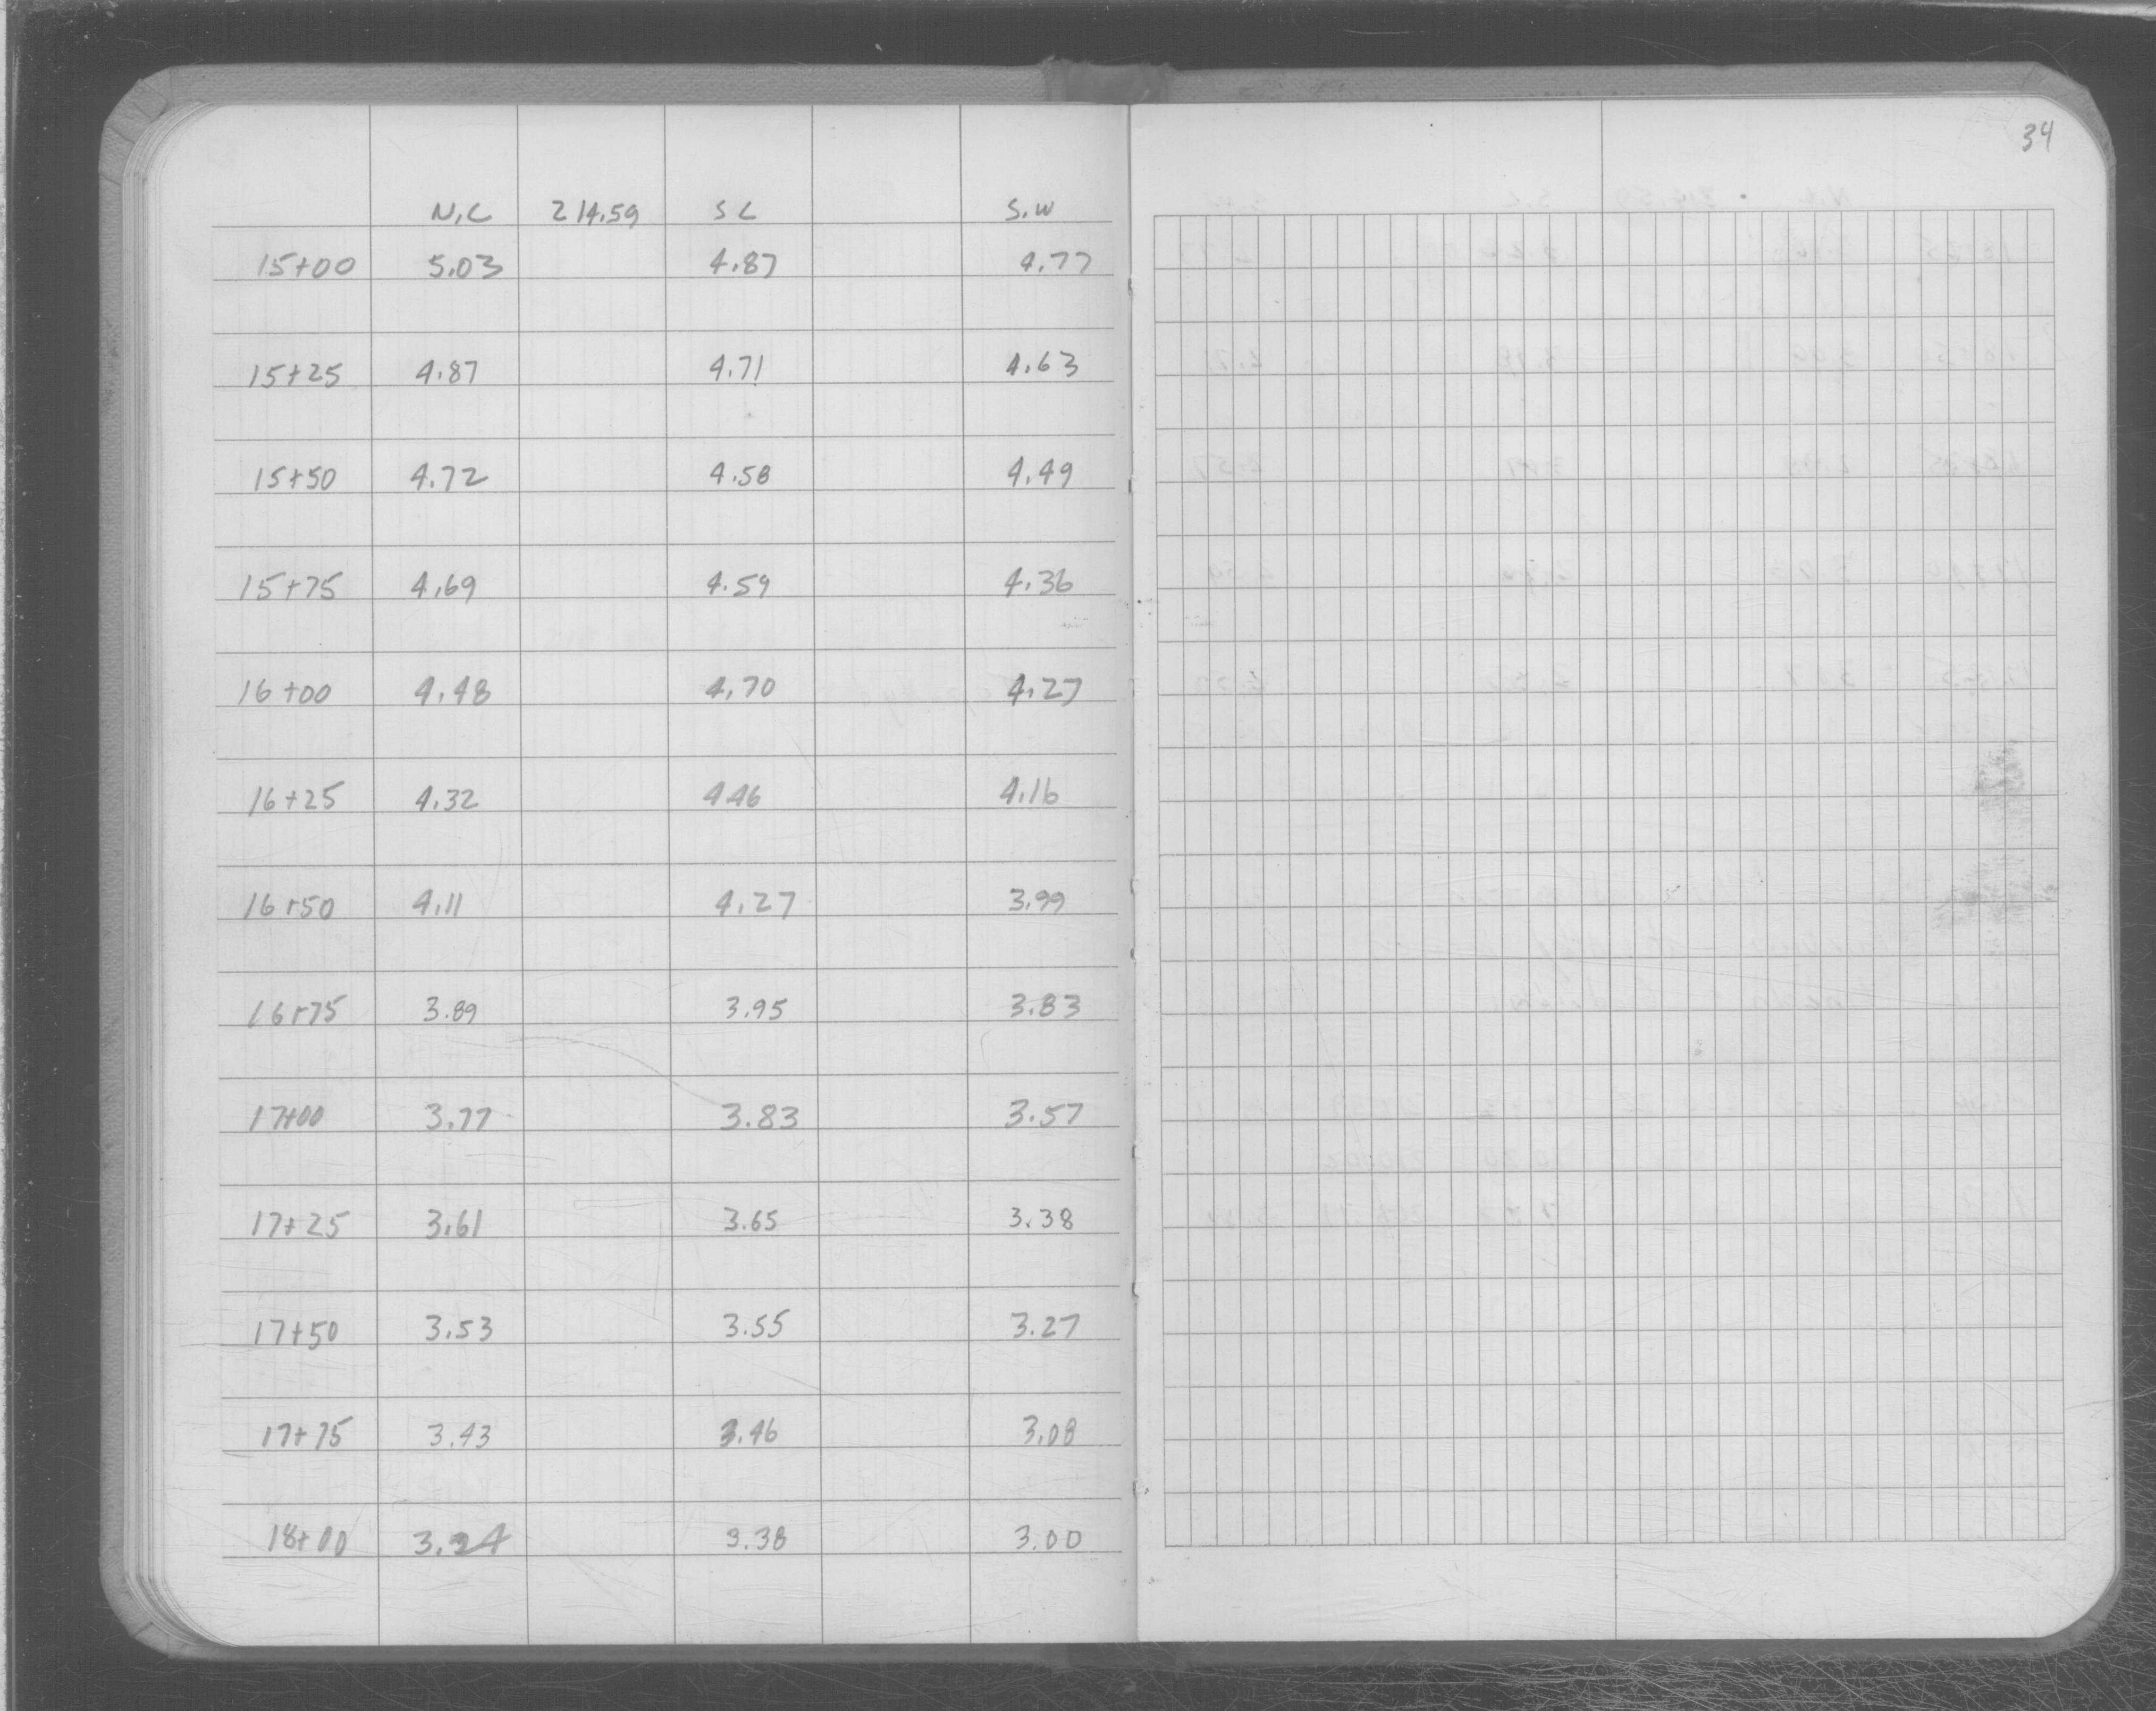 N.C 214.59 SC S.W
15+00 5.03 4.87 4.77
15+25 4.87 4.71 4.63
15+50 4.72 4.58 4.49
15+75 4.69 4.59 4.36
16+00 4.48 4.70 4.27
16+25 4.32 4.46 4.16
16+50 4.11 4.27 3.99
16+75 3.89 3.95 3.83
17+00 3.77 3.83 3.57
17+25 3.61 3.65 3.38
17+50 3.53 3.55 3.27
17+75 3.43 3.46 3.08
18+00 3.38 3.00
34